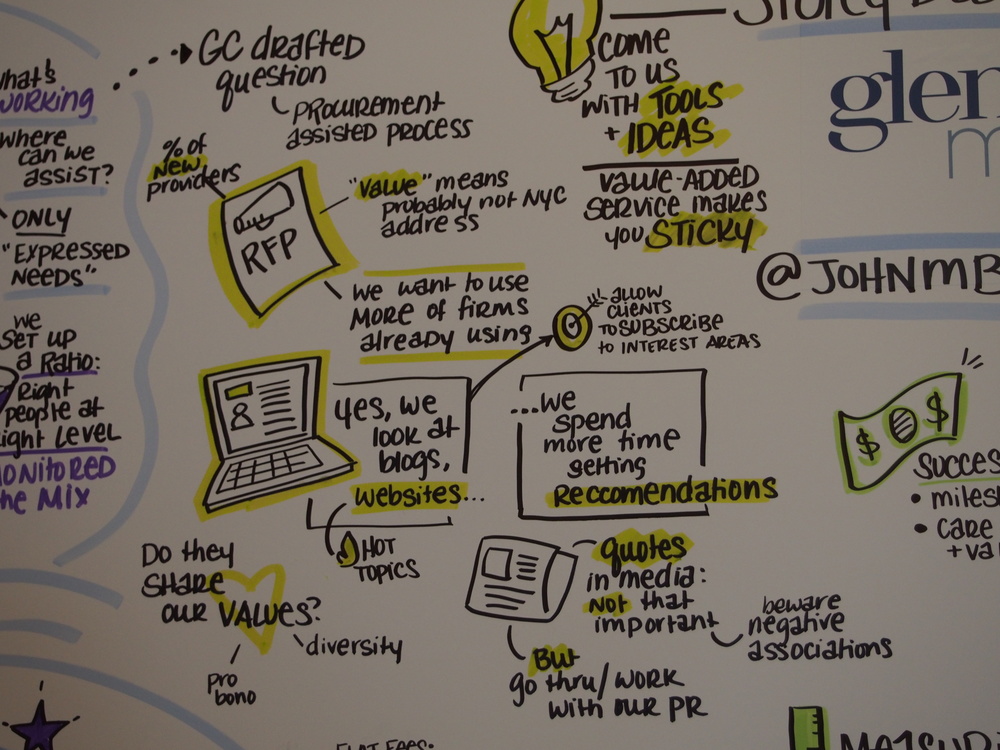 what's
working
where
can we
assist?
ONLY
"EXPRESSED
NEEDS"
we
set up
a Ratio:
Right
people at
Right Level
MONITORED
the MIX
GC drafted
question
PROCUREMENT
assisted process
% of
New
providers
RFP
"Value" means
probably not NYC
address
we want to use
MORE of firms
already using
COME
TO US
WITH TOOLS
+ IDEAS
VALUE-ADDED
SERVICE MAKES
YOU STICKY
ALLOW
CLIENTS
TO SUBSCRIBE
to INTEREST AREAS
yes, we
look at
blogs,
websites...
HOT
TOPICS
...we
spend
more time
getting
Reccomendations
Do they
SHARE
our VALUES?
diversity
pro
bono
quotes
in media:
NOT that
important
beware
negative
associations
But
go thru/work
with our PR
glen
m
@JOHNMB
$ $
SUCCES
• miles
• care
+va
FLAT FEES.